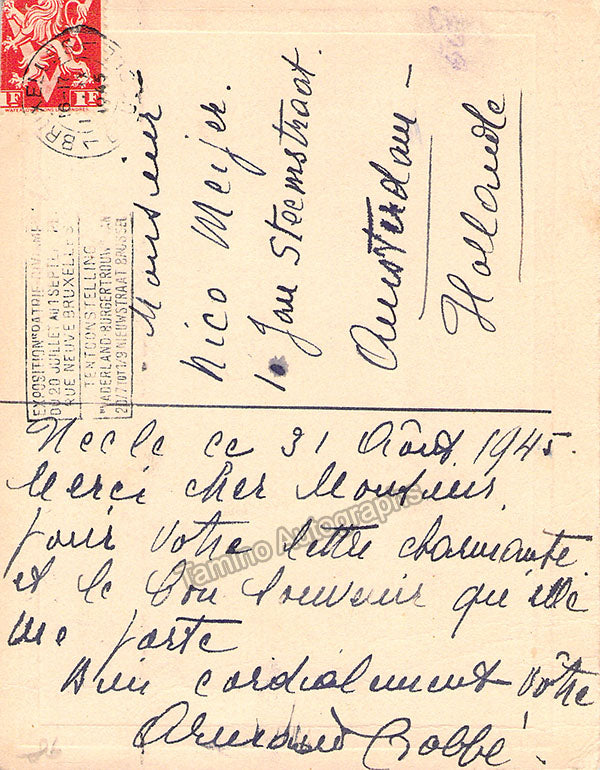 1F 1F
1945
Monsieur
Nico Meijer.
10 Jan Steenstraat.
Amsterdam –
Hollande
EXPOSITION "PATRIE
DU 20 JUILLET AU 1 SEPT
RUE NEUVE BRUXELLES
TENTOONSTELLING
"VADERLAND-BURGERTROUW
20/7 TOT 1/9 NIEUWSTRAAT BRUSSEL
ce 31 Août 1945.
Merci cher Monsieur
pour votre lettre charmante
et le bon souvenir qu'elle
me porte
Bien cordialement vôtre
Armand Crabbé.
Tamino Autographs